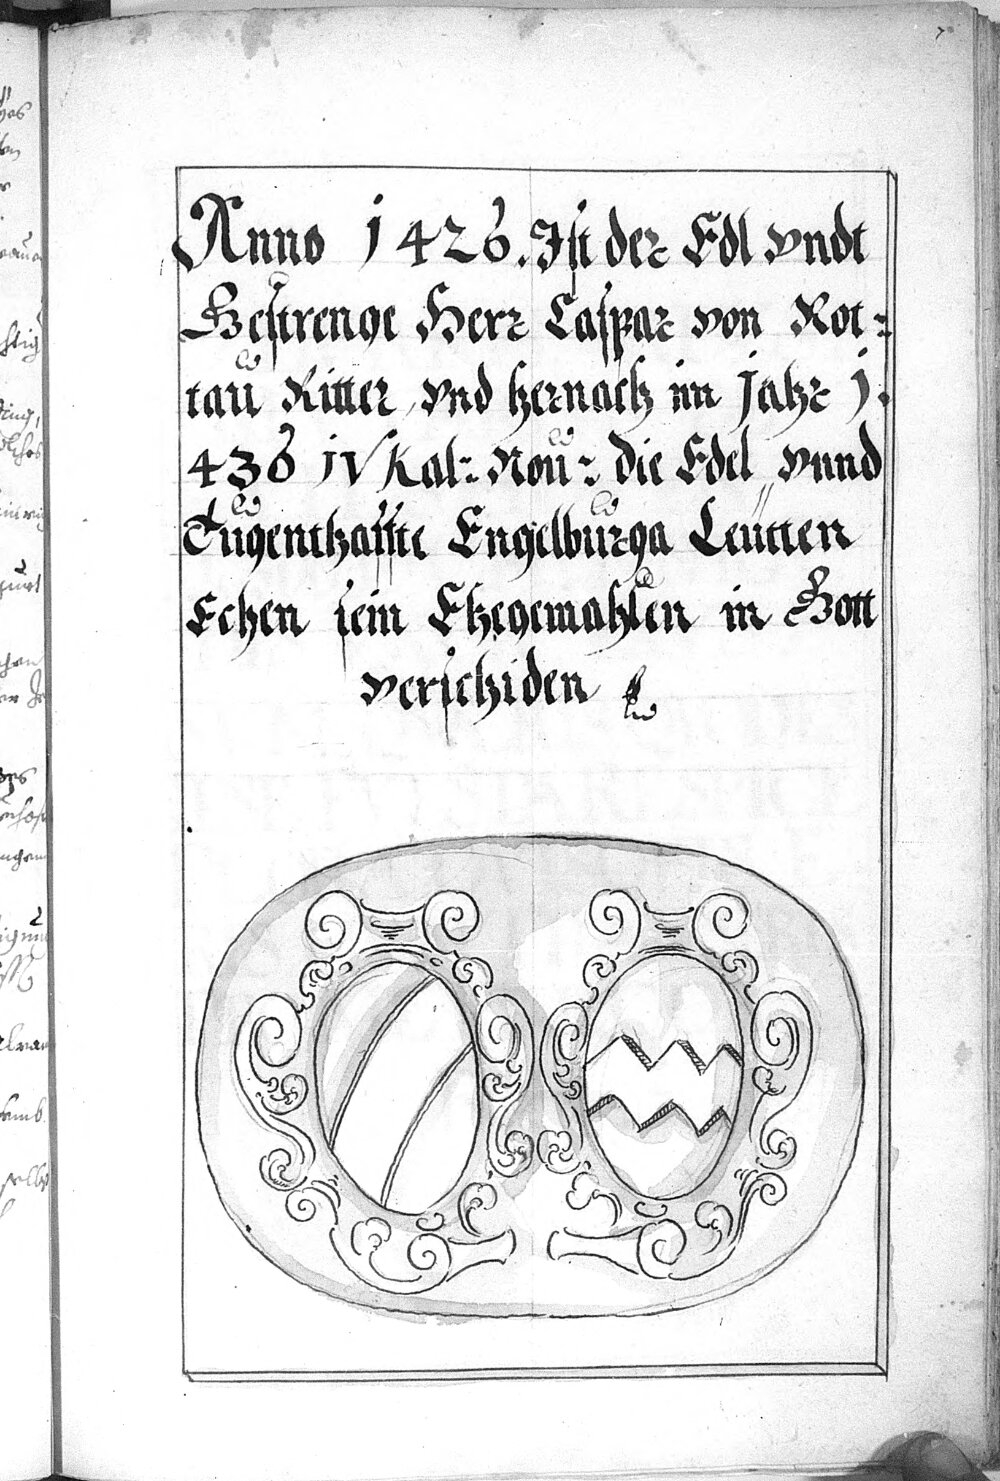 7
Anno 1426. Ist der Edl vndt
Gestrenge Herr Caspar von Rot=
tau Ritter, vnd hernach im Jahr 1.
436 IV Kal: Nou: die Edel vnnd
Tugenthaffte Engelburga Leutten
Echen sein Ehegemahlen in Gott
verschiden